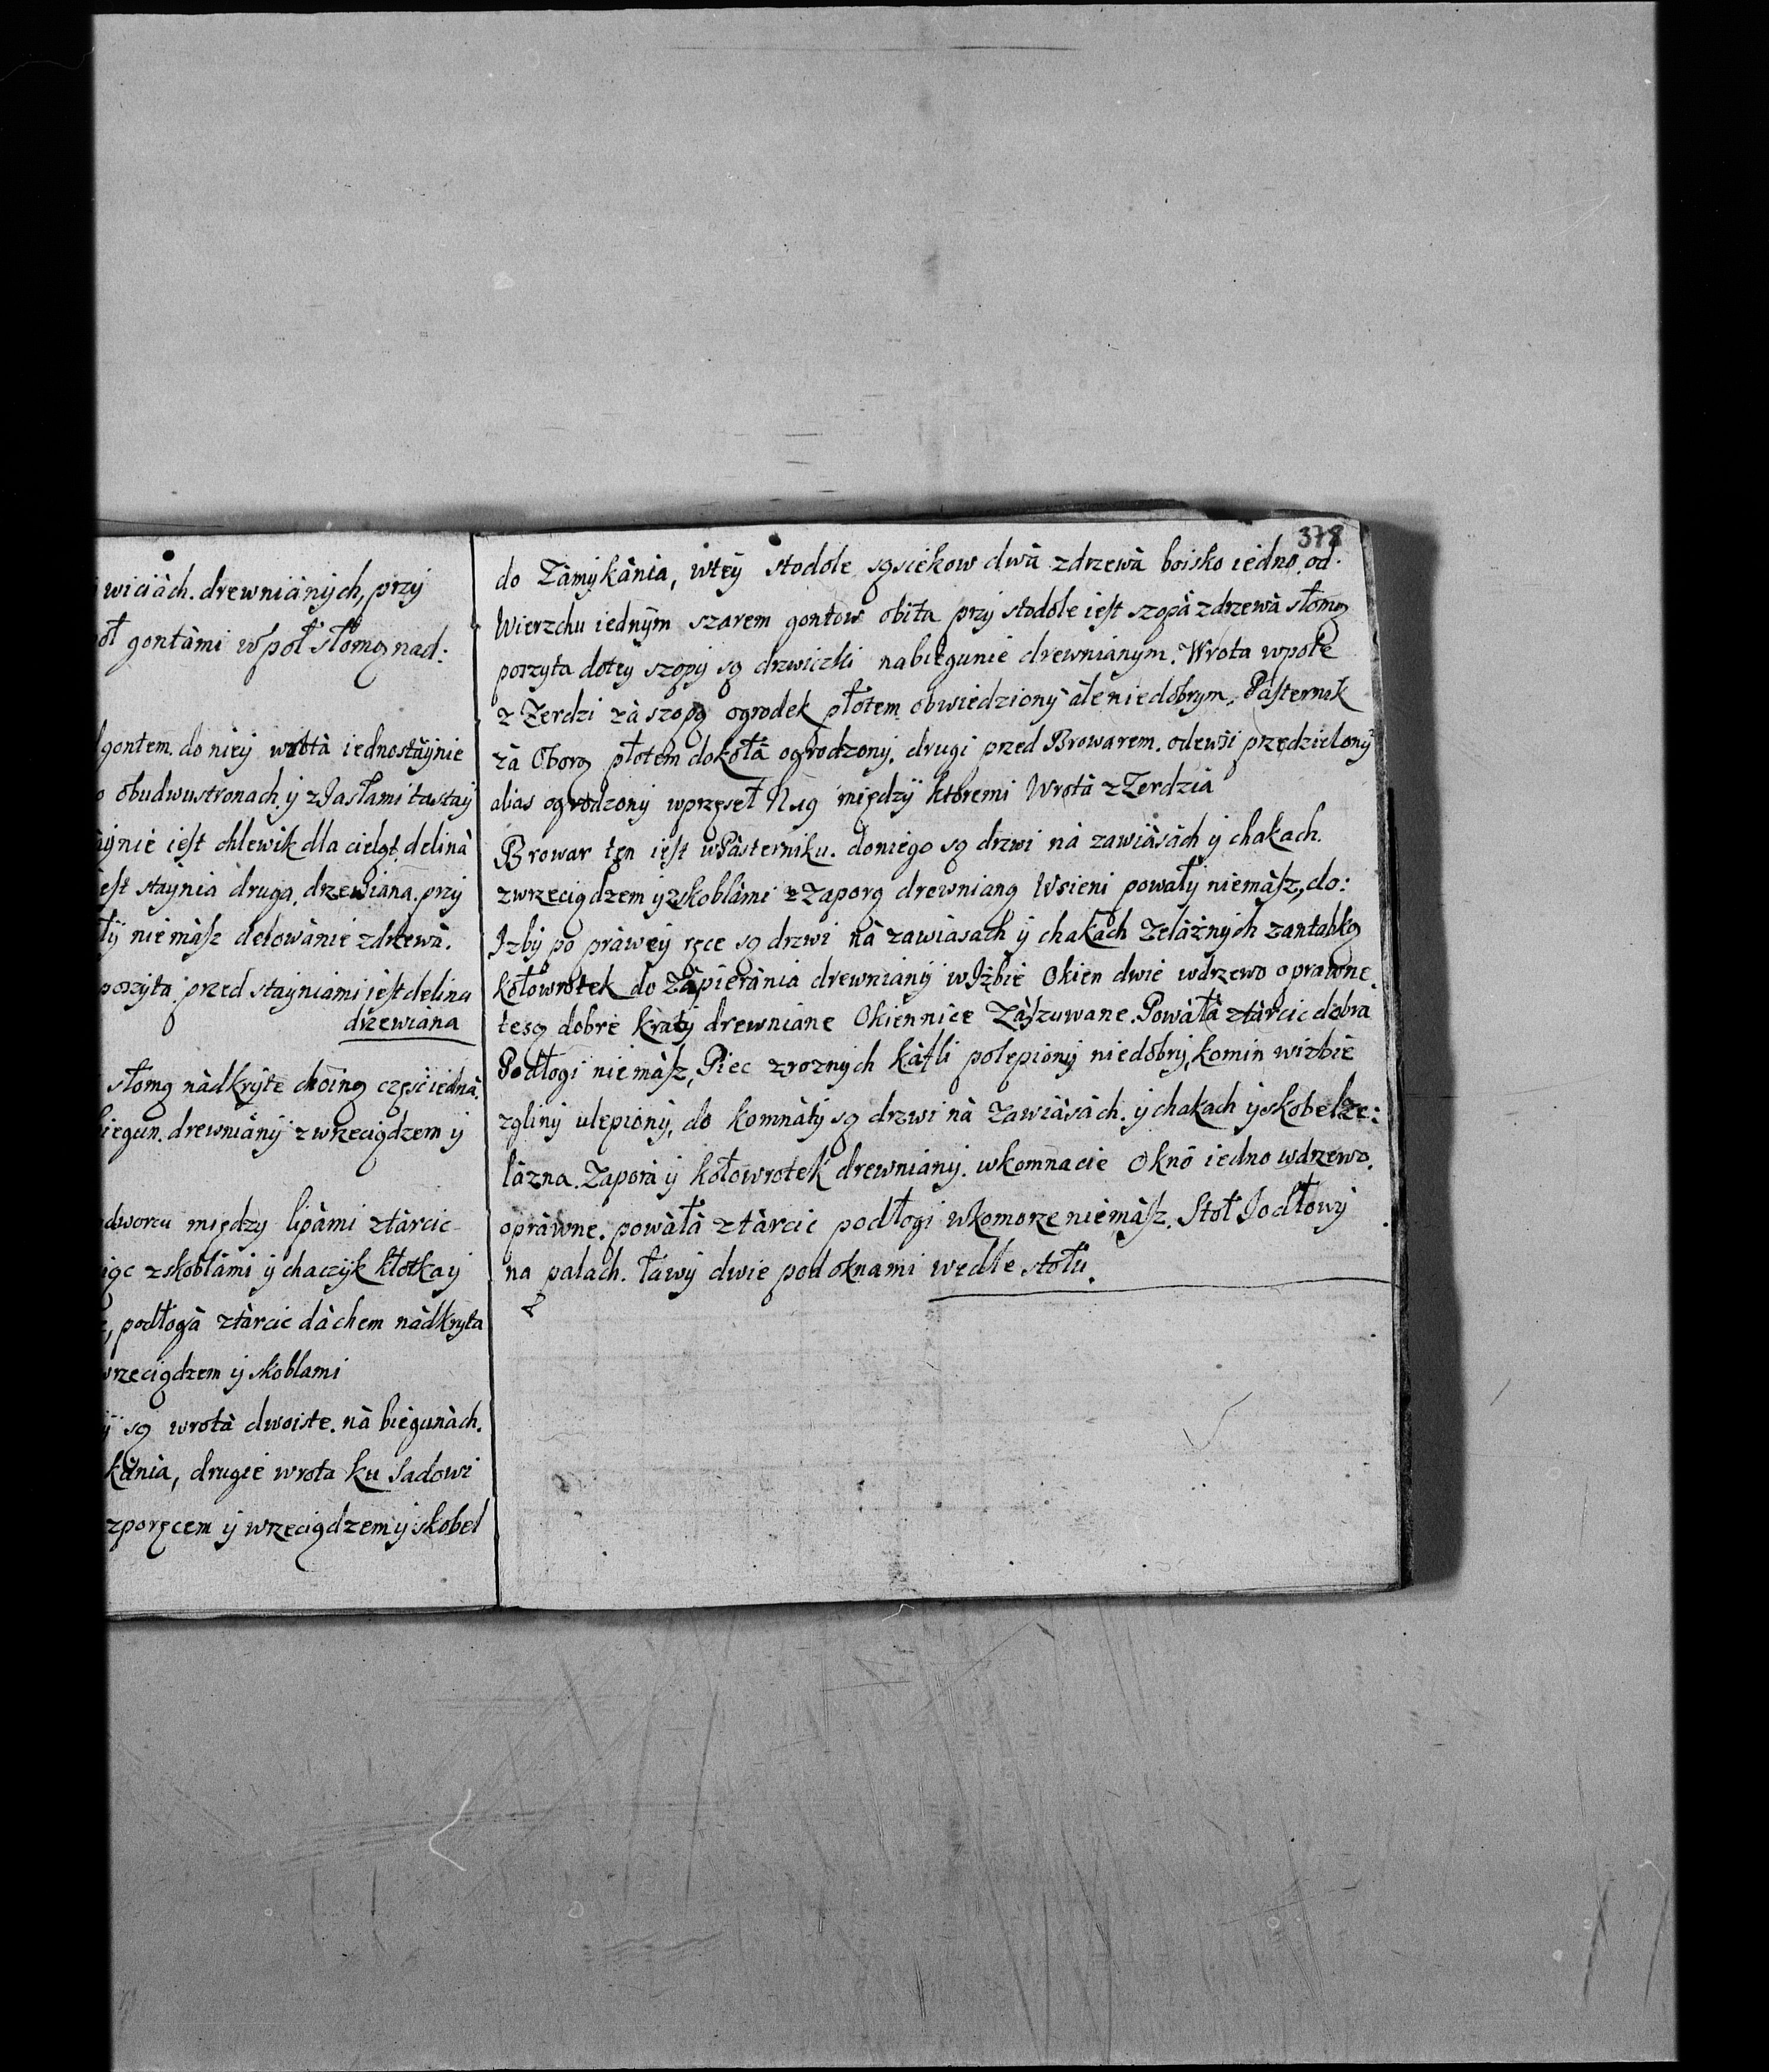 wiciàch. drewniànych, przy
gontàmi wpoł słomą nad:
gontem. do niey wrotà iednostàynie
obudwustronach y zJasłami tastay
iest chlewik dla cieląt delinà
staynia druga, drzewiana. przy
niemász delowànie zdrzewà.
poszyta przed stayniami iest delina
drzewiana
słomą nàdkryte choiną część iednà.
biegun. drewniàny zwrzeciądzem y
dworcu między lipàmi ztàrcic
zskoblàmi y chaczyk kłotka y
podłogà ztàrcic dàchem nàdkryta
wrzeciądzem y skoblami
są wrotà dwoiste. nà biegunàch.
kània, drugie wrota ku sadowi
zporęcem y wrzeciądzem y skobel
378
do Zàmykània, wtey stodole sąsiekow dwà zdrzewà boisko iedno. od.
Wierzchu iednym szarem gontow obita przy stodole iest szopà zdrzewà słomą
poszyta dotey szopy są drzwiczki nabiegunie drewnianym. Wrota wpole
z Zerdzi zà szopą ogrodek płotem obwiedziony àle niedobrym. Pàsternik
zà Oborą płotem dokołà ogrodzony, drugi przed Browarem. odewsi przędzielony
alias ogrodzony wprzęseł N 19 między ktoremi Wrotà z Zerdzia
Browar ten iest wPàsterniku. doniego są drzwi nà zawiàsàch y chakach.
zwrzeciądzem y zskoblàmi z Zaporą drewnianą Wsieni powały niemàsz, do:
Izby po pràwey ręce są drzwi nà zawiàsach y chakàch Zelàżnych zantabką
kołowrotek do Zàpierània drewniany wIzbie Okien dwie wdrzewo oprawne.
tesą dobre kraty drewniane Okiennice Zàszuwane. Powàłà ztàrcic dobra
Podłogi niemàsz, Piec zroznych kàfli polepiony niedobry, komin wizbie
zgliny ulepiony, do komnàty są drzwi nà Zawiàsàch. y chakach y skobel ze:
làzna. Zaporà y kołowrotek drewniany. wkomnacie Okno iedno wdrzewo.
opràwne. powàłà ztàrcic podłogi wkomorze niemàsz. Stoł Jodłowy
na palach. ławy dwie pod oknami wedle stołu.